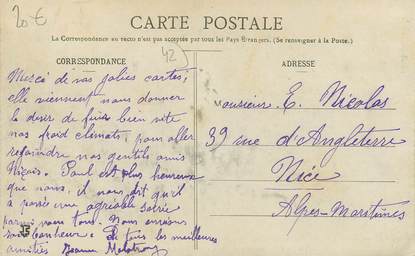 20 €
CARTE POSTALE
La Correspondance au recto n'est pas acceptée par tous les Pays Étrangers. (Se renseigner à la Poste.)
42
CORRESPONDANCE
ADRESSE
Merci de vos jolies cartes,
elle viennent nous donner
le désir de fuire bien vite
nos froid climats, pour aller
rejoindre nos gentils amis
Niçois. Paul est plus heureux
que nous, il nous dit qu'il
a passée une agréable soirée
parmi vous tous. Nous envions
son bonheur. A tous les meilleures
amitiés Jeanne
Monsieur E. Nicolas
39 rue d'Angleterre
Nice
Alpes-Maritimes